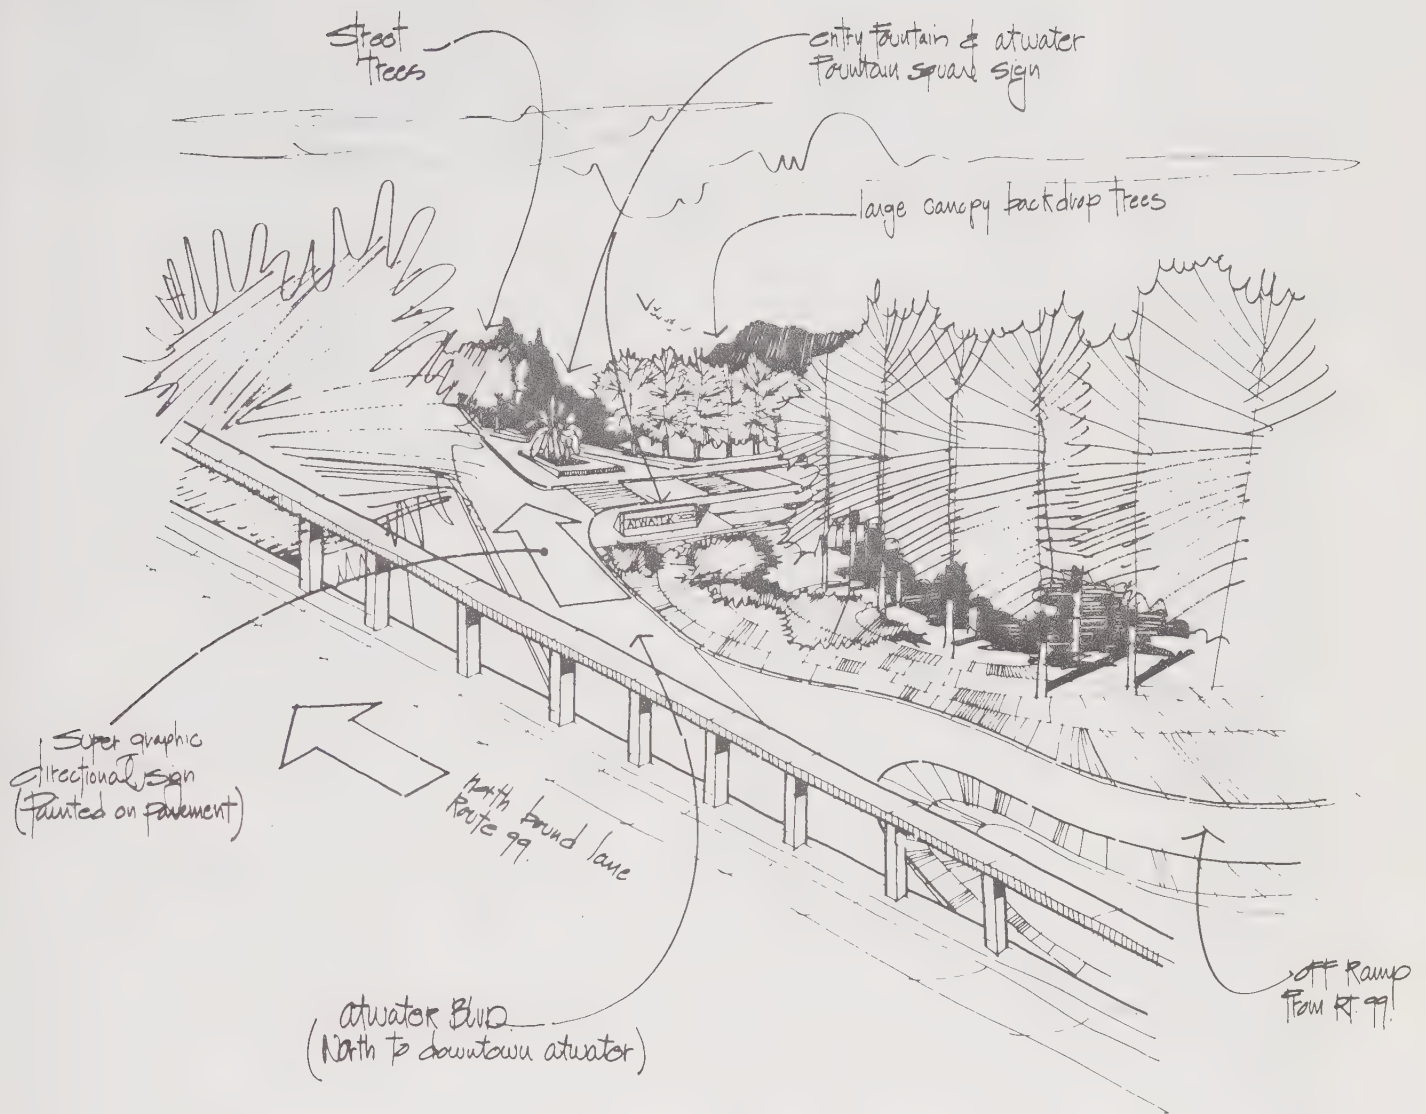 Street
Trees
entry fountain & atwater
Fountain square sign
large canopy backdrop trees
ATWATER
Super graphic
directional sign
(Painted on pavement)
north bound lane
Route 99.
atwater Blvd.
(North to downtown atwater)
off Ramp
From Rt. 99.